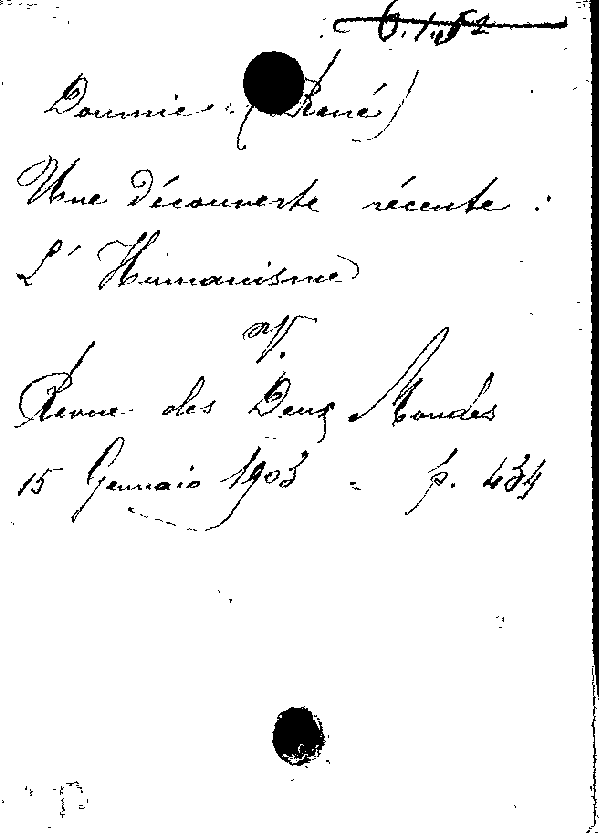 Doumic (René)
Une découverte récente :
L' Humanisme
V.
Revue des Deux Mondes
15 Gennaio 1903 - p. 434